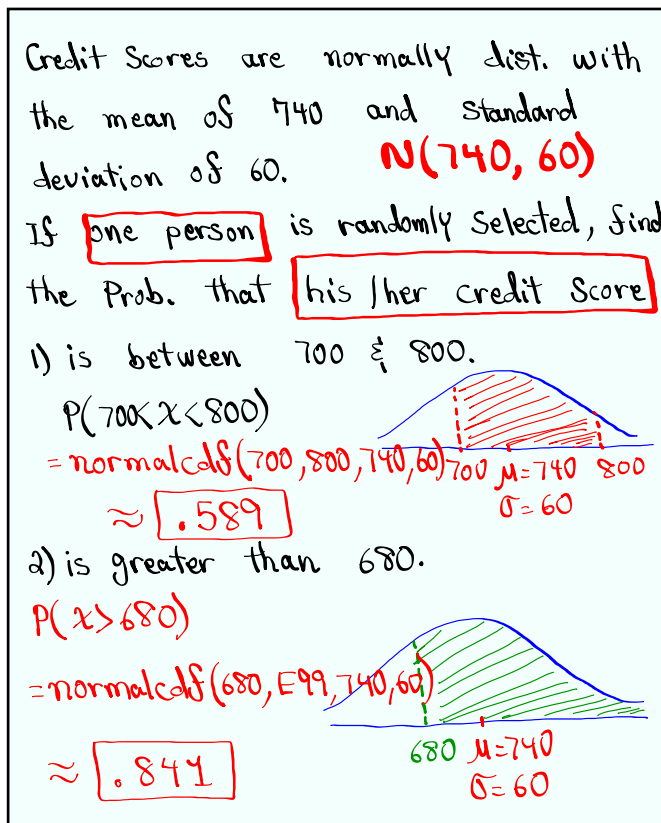 Credit Scores are normally dist. with
the mean of 740 and Standard
deviation of 60. N(740, 60)
If one person is randomly selected, find
the Prob. that his/her credit Score
1) is between 700 & 800.
P(700<x<800)
=normalcdf(700,800,740,60) 700 μ=740 800
≈ .589 σ=60
2) is greater than 680.
P(x>680)
=normalcdf(680,E99,740,60)
680 μ=740
≈ .841 σ=60